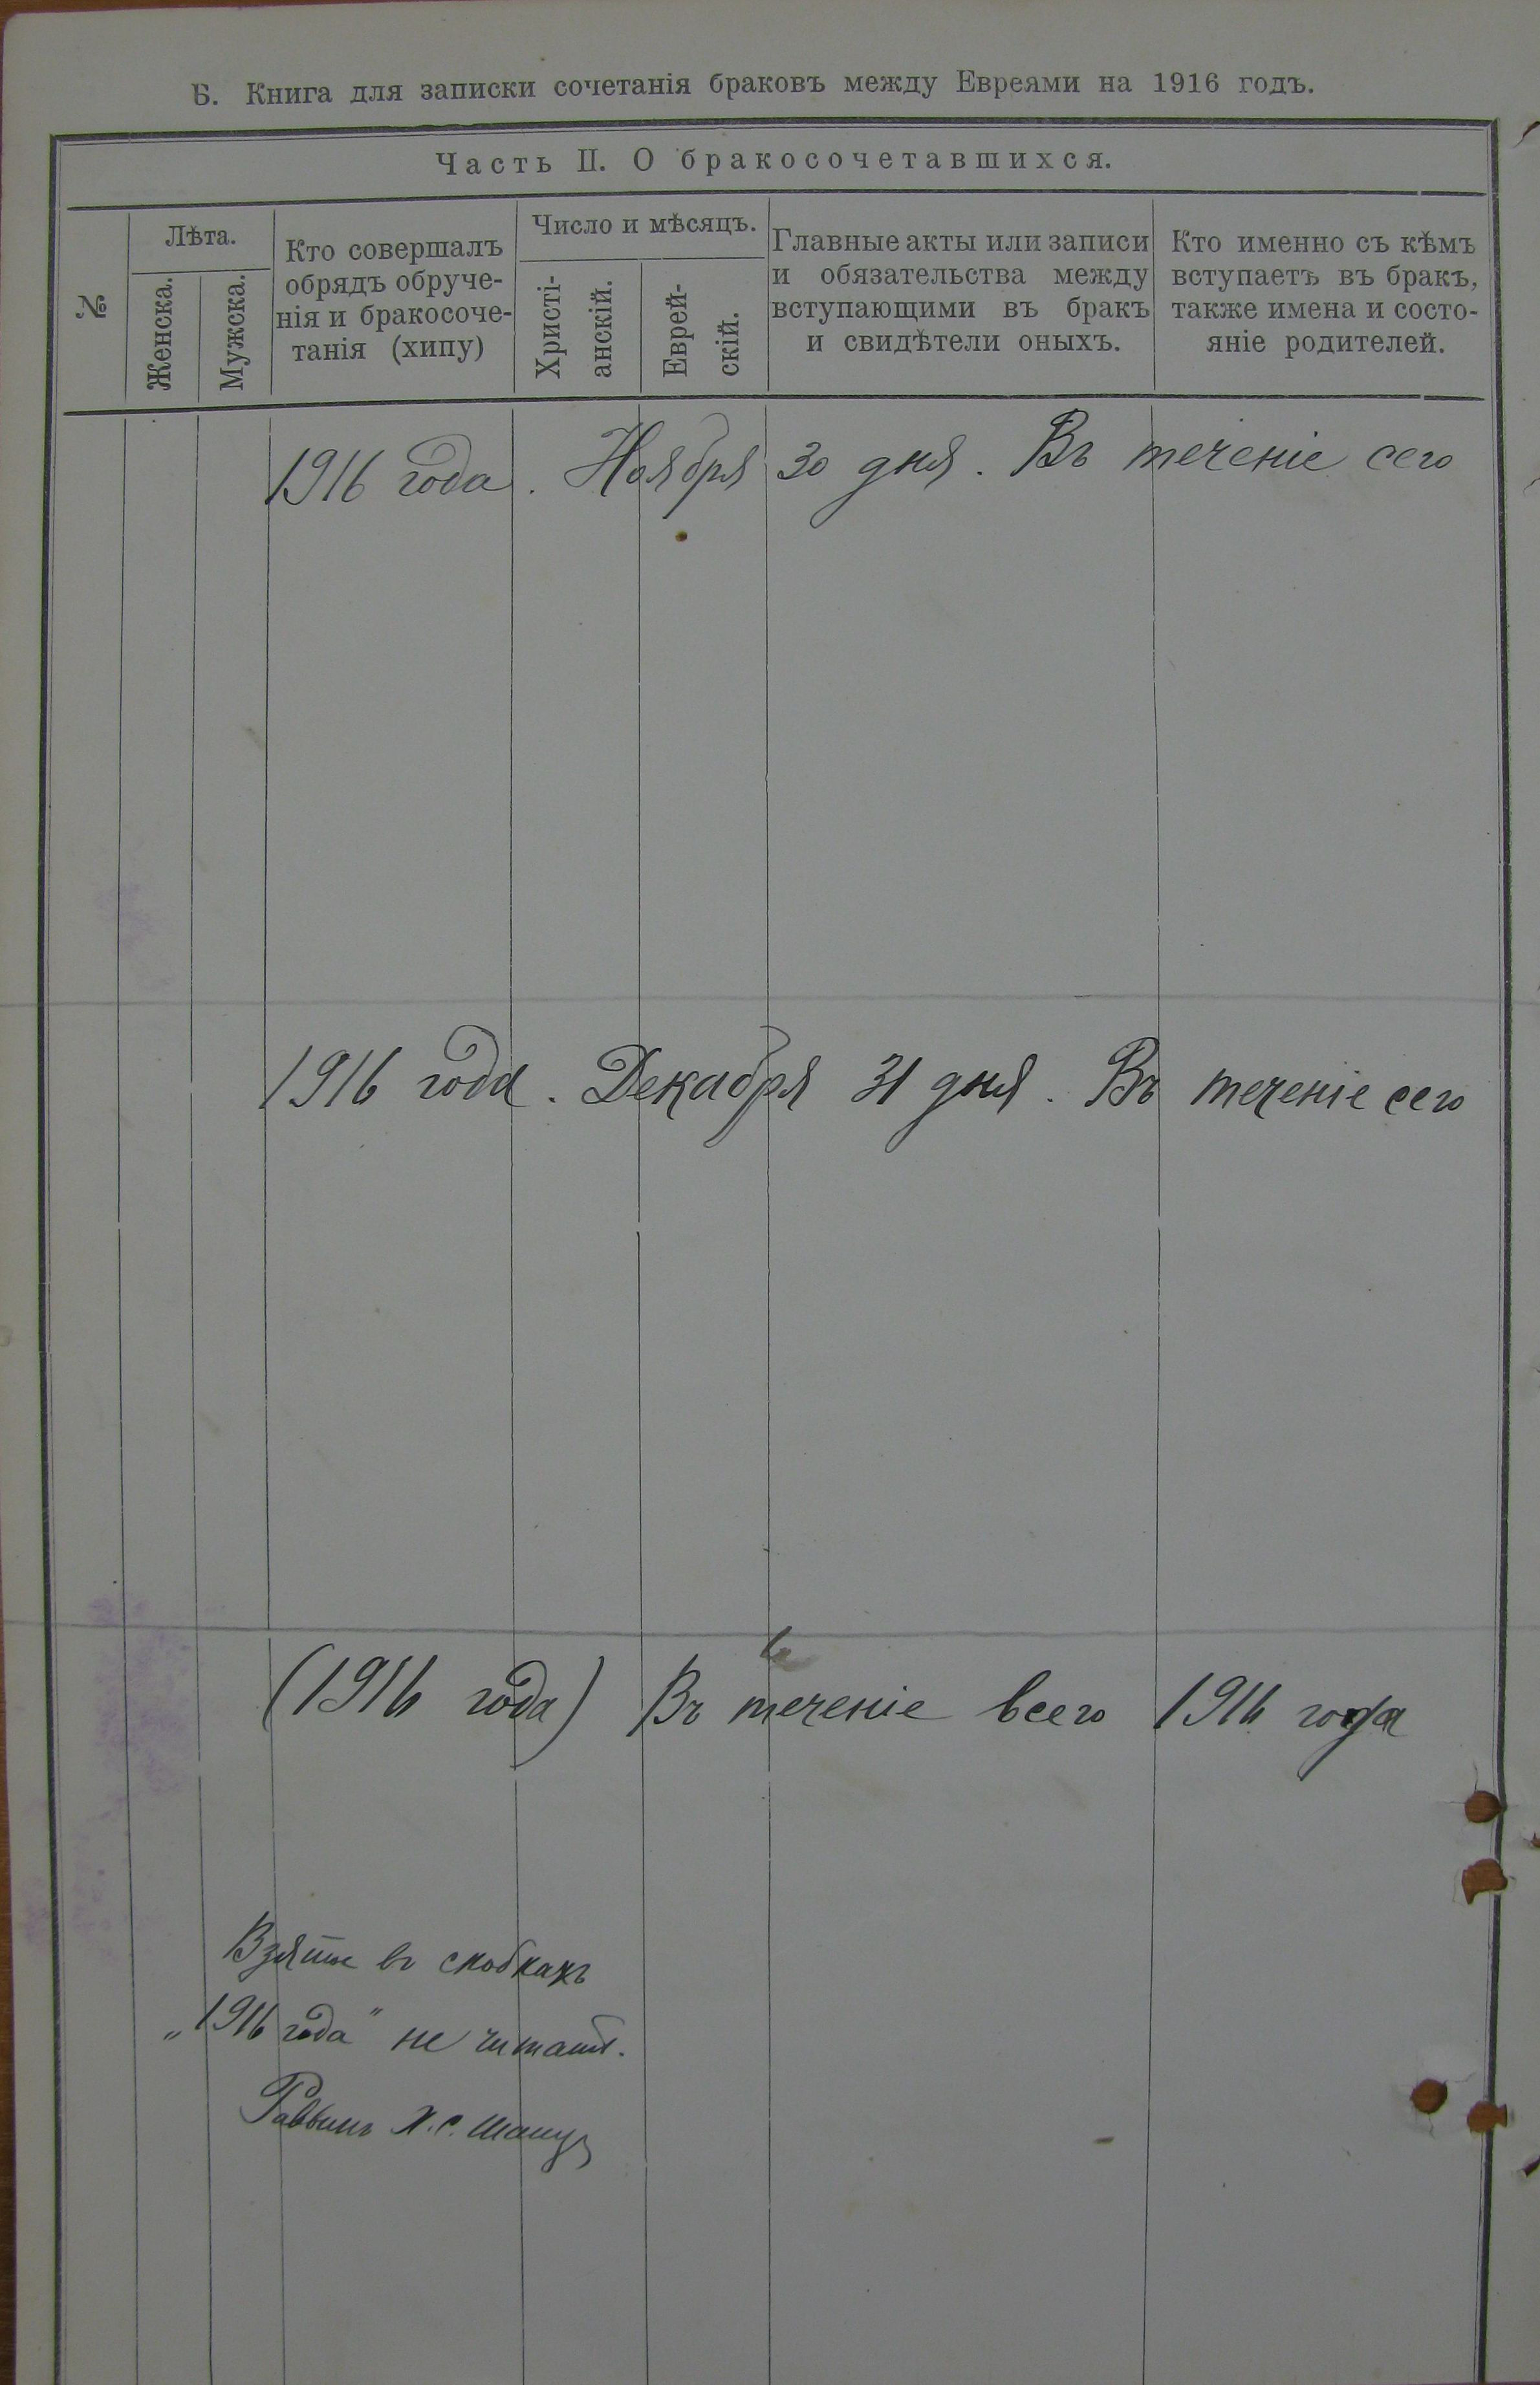 Б. Книга для записки сочетанія браковъ между Евреями на 1916 годъ.
Часть II. О бракосочетавшихся.
№
Лѣта.
Женска.
Мужска.
Кто совершалъ
обрядъ обруче-
нія и бракосоче-
танія (хипу)
Число и мѣсяцъ.
Христі-
анскій.
Еврей-
скій.
Главные акты или записи
и обязательства между
вступающими въ бракъ
и свидѣтели оныхъ.
Кто именно съ кѣмъ
вступаетъ въ бракъ,
также имена и состо-
яніе родителей.
1916 года. Ноября 30 дня. Въ теченіе сего
1916 года. Декабря 31 дня. Въ теченіе сего
(1916 года) Въ теченіе всего 1916 года
Взятые въ скобкахъ
„1916 года" не читать.
Раввинъ Х. С.